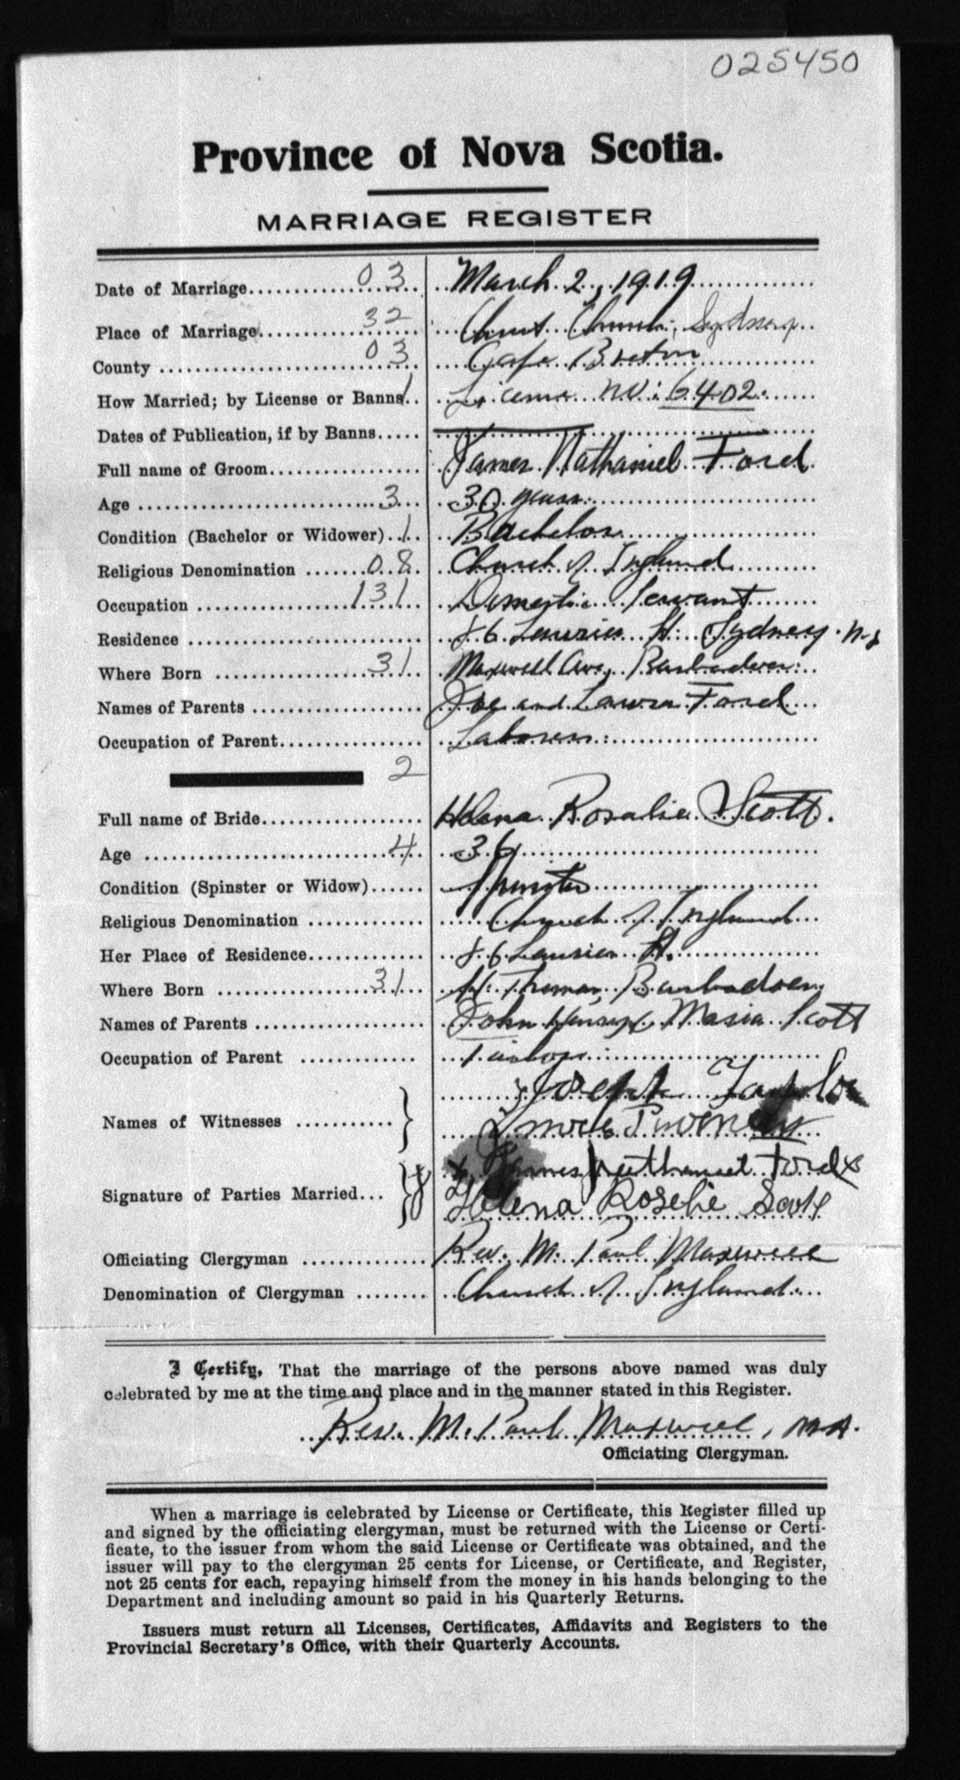 025450
Province of Nova Scotia.
MARRIAGE REGISTER
Date of Marriage 03 March 2, 1919
Place of Marriage 32 Christ Church, Sydney
County 03 Cape Breton
How Married; by License or Banns 1 License no: 6402.
Dates of Publication, if by Banns
Full name of Groom James Nathaniel Ford
Age 3 30 years
Condition (Bachelor or Widower) 1 Bachelor
Religious Denomination 08 Church of England
Occupation 131 Domestic Servant
Residence 86 Laurier St. Sydney. N.S
Where Born 31 Maxwell Barbadoes
Names of Parents Joe and Laura Ford
Occupation of Parent Laborer
2
Full name of Bride Helena Rosalie Scott.
Age 4 36
Condition (Spinster or Widow) Spinster
Religious Denomination Church of England
Her Place of Residence 86 Laurier St.
Where Born 31 St. Thomas, Barbadoes
Names of Parents John Henry & Maria Scott
Occupation of Parent
Names of Witnesses } Joseph Taylor
Signature of Parties Married } x James Nathaniel Ford x
Helena Roselie Scott
Officiating Clergyman Rev. M. Paul Maxwell
Denomination of Clergyman Church of England
I Certify, That the marriage of the persons above named was duly
celebrated by me at the time and place and in the manner stated in this Register.
Rev. M. Paul Maxwell, M.A.
Officiating Clergyman.
When a marriage is celebrated by License or Certificate, this Register filled up
and signed by the officiating clergyman, must be returned with the License or Certi-
ficate, to the issuer from whom the said License or Certificate was obtained, and the
issuer will pay to the clergyman 25 cents for License, or Certificate, and Register,
not 25 cents for each, repaying himself from the money in his hands belonging to the
Department and including amount so paid in his Quarterly Returns.
Issuers must return all Licenses, Certificates, Affidavits and Registers to the
Provincial Secretary's Office, with their Quarterly Accounts.